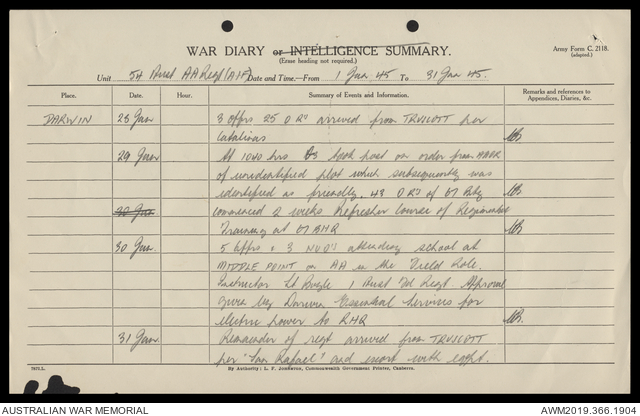 WAR DIARY or INTELLIGENCE SUMMARY.
(Erase heading not required.)
Army Form C. 2118.
(adapted.)
Unit 54 Aust AA Regt (AIF) Date and Time.—From 1 Jan 45 To 31 Jan 45.
Place. Date. Hour. Summary of Events and Information. Remarks and references to Appendices, Diaries, &c.
DARWIN 28 Jan 3 offrs 25 ORs arrived from TRUSCOTT per
Catalinas
29 Jan At 1040 hrs took post on order from AAOR
of unidentified plot which subsequently was
identified as friendly. 43 ORs of 67 Bty
30 Jan commenced 2 weeks Refresher Course of Regimental
Training at 67 BHQ
30 Jan 5 offrs & 3 NCO's attending school at
MIDDLE POINT on AA in the Field Role.
Instructor Lt 1 Aust Fd Regt. Approval
given by Darwin Essential Services for
electric power to RHQ
31 Jan Remainder of regt arrived from TRUSCOTT
per "San Rafael" and escort with eqpt.
7872.L. By Authority: L. F. Johnston, Commonwealth Government Printer, Canberra.
AUSTRALIAN WAR MEMORIAL AWM2019.366.1904